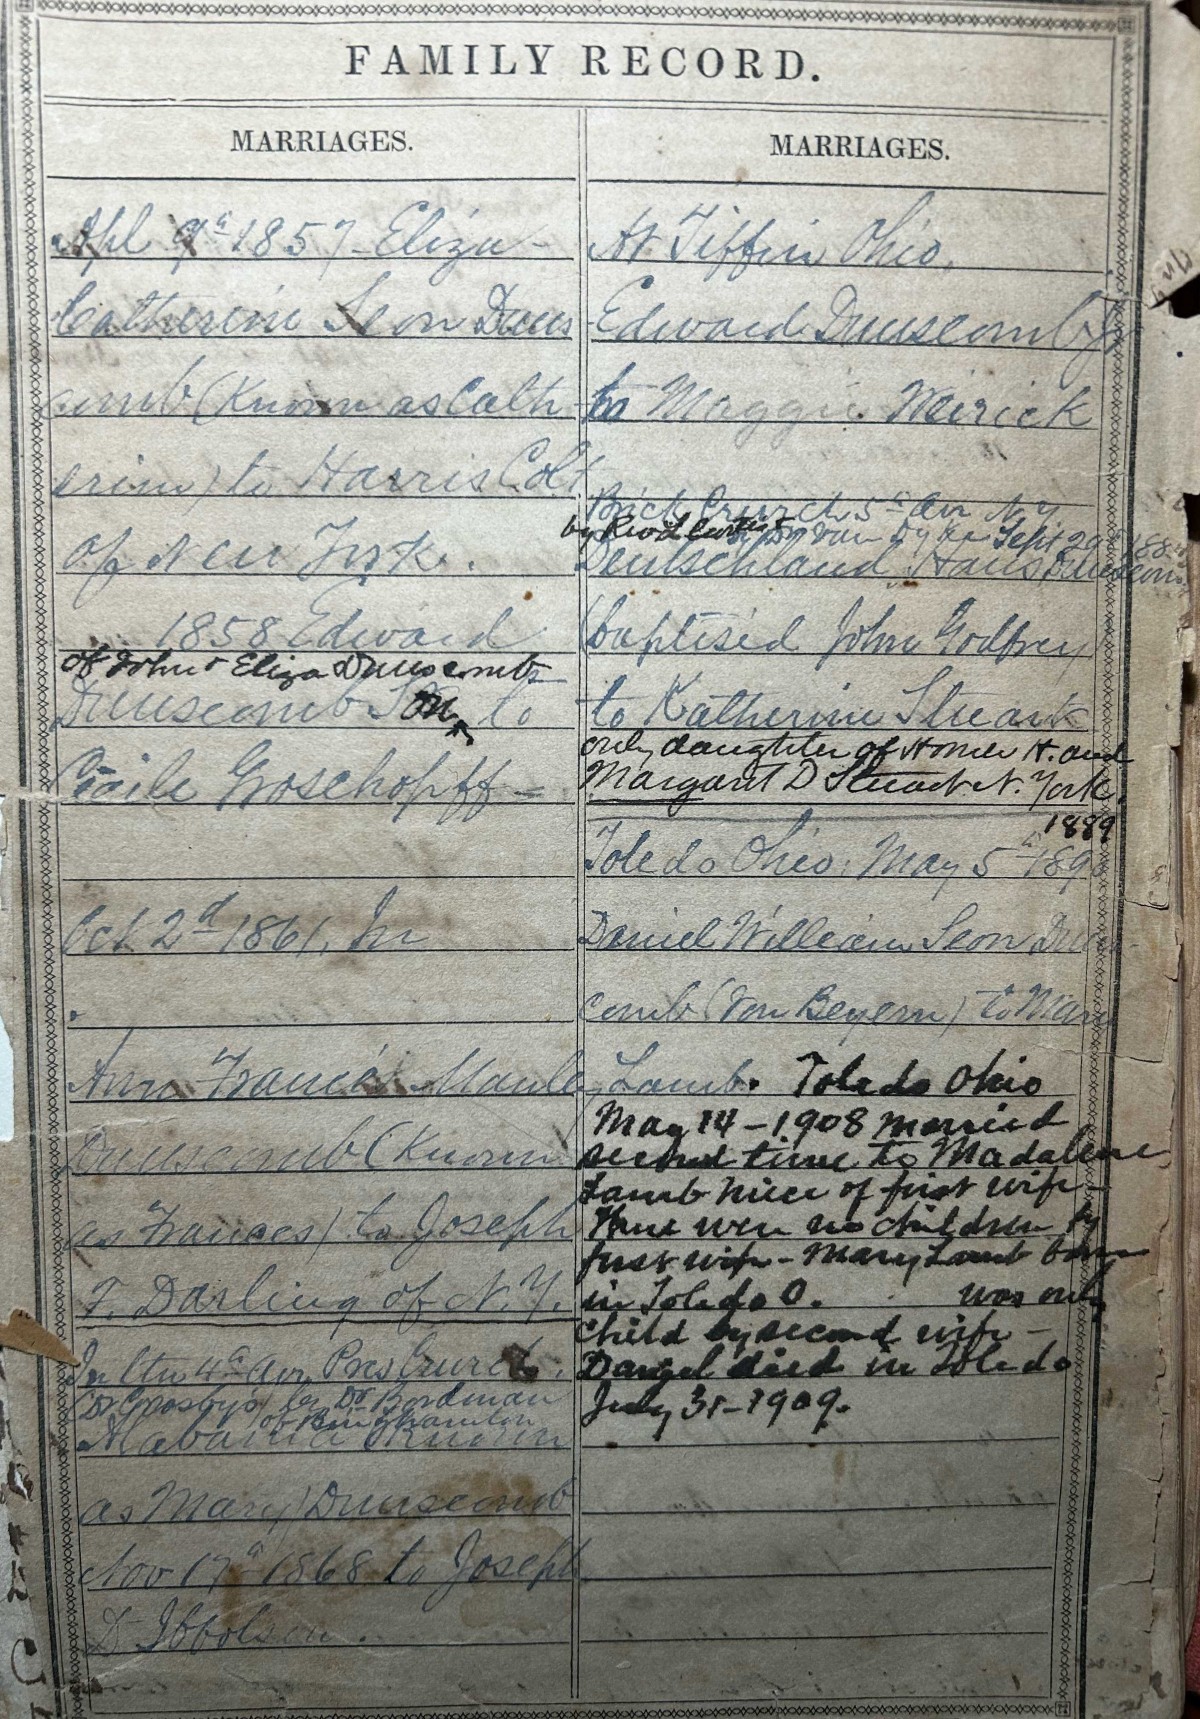 FAMILY RECORD.
MARRIAGES.
Apl 9th 1857 - Eliza -
Catherine Leon Duns
comb (Known as Cath
erine) to Harris Colt
of New York.
1858 Edward
of John & Eliza Dunscomb
Dunscomb Son to
Cecile Groschopff =
Oct 2d 1861, In
Ann Francis Manley
Dunscomb (Known
as Frances) to Joseph
F. Darling of N.Y.
In the 4th Av. Pres Church,
(Dr Crosby's) by Dr Bordman
of Binghamton
Alabama Known
as Mary) Dunscomb
Nov 17th 1868 to Joseph
D Ibbotson.
MARRIAGES.
At Tiffin Ohio,
Edward Dunscomb Jr
to Maggie Weirick
Brick Church 5th Av N.Y
by Revd Van Dyke Sept 29th 188
Deutschland Hans Dunscomb
(baptised John Godfrey
to Katherine Steuart
only daughter of Homer H. and
Margaret D Steuart N. York.
1889
Toledo Ohio, May 5th 189
Daniel William Leon Duns-
comb (Von Beyern) to Mary
Lamb. Toledo Ohio
May 14 - 1908 married
second time to Madalene
Lamb niece of first wife -
There were no children by
first wife - Mary Lamb born
in Toledo O. was only
child by second wife -
Daniel died in Toledo
July 31 - 1909.